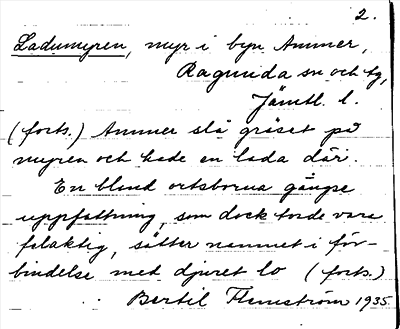 2.
Ladumyren, myr i byn Ammer,
Ragunda sn och tg,
Jämtl. l.
(forts.) Ammer slå gräset på
myren och hade en lada där.
En bland ortsborna gängse
uppfattning, som dock torde vara
felaktig, sätter namnet i för-
bindelse med djuret lo (forts.)
Bertil Flemström 1935